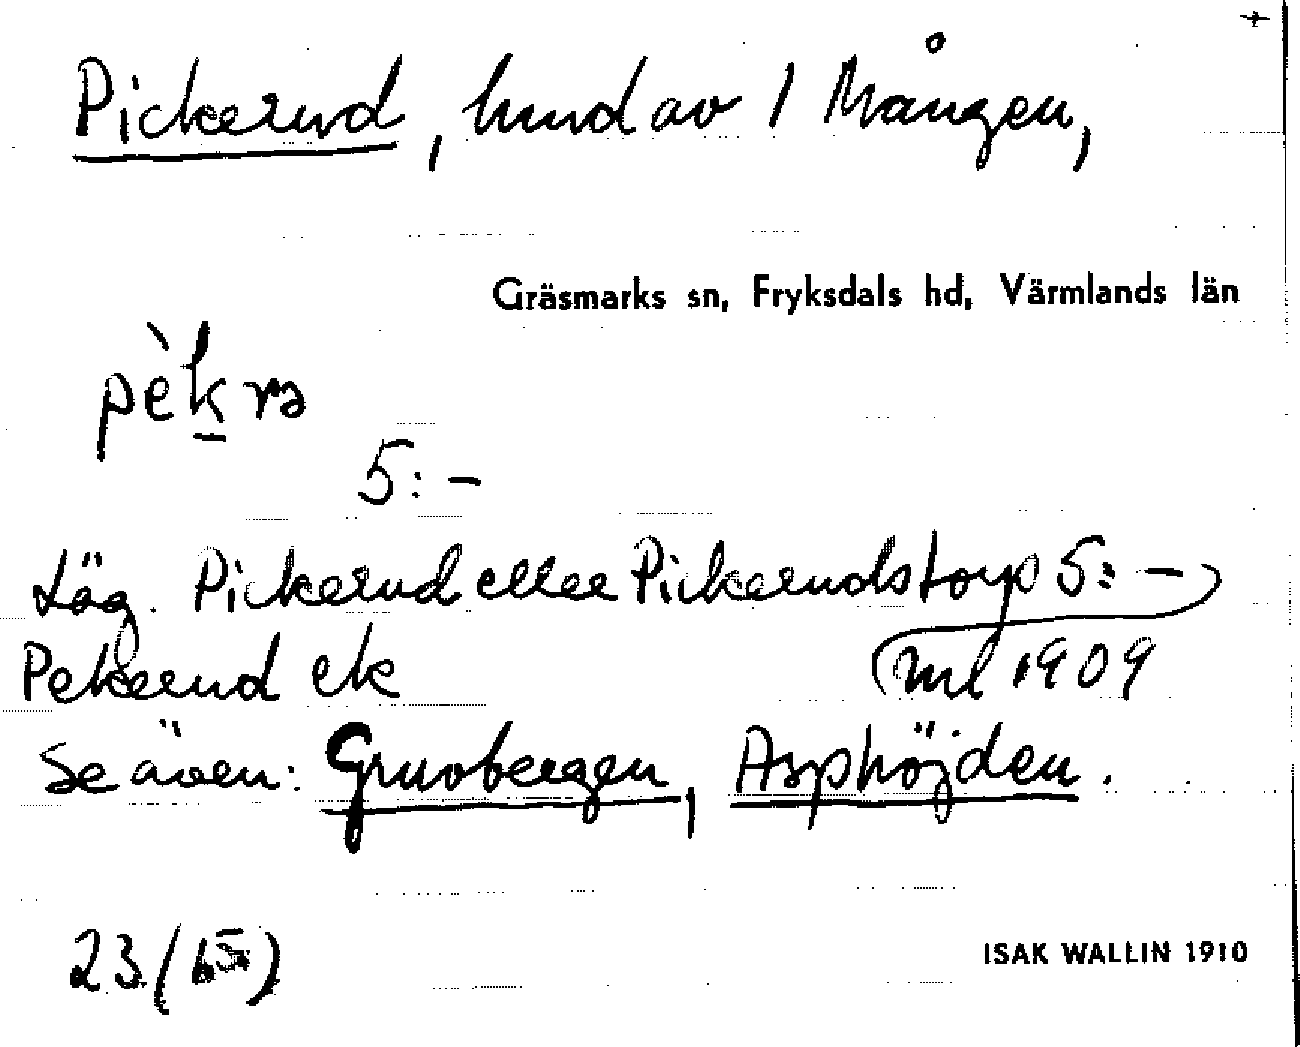 Pickerud, hmd av 1 Mången,
Gräsmarks sn, Fryksdals hd, Värmlands län
pèkrə
5:-
Läg. Pickerud eller Pickerudstorp 5:-
Pekerud ek ml 1909
Se även: Gruvbergen, Asphöjden.
23 (15)
ISAK WALLIN 1910